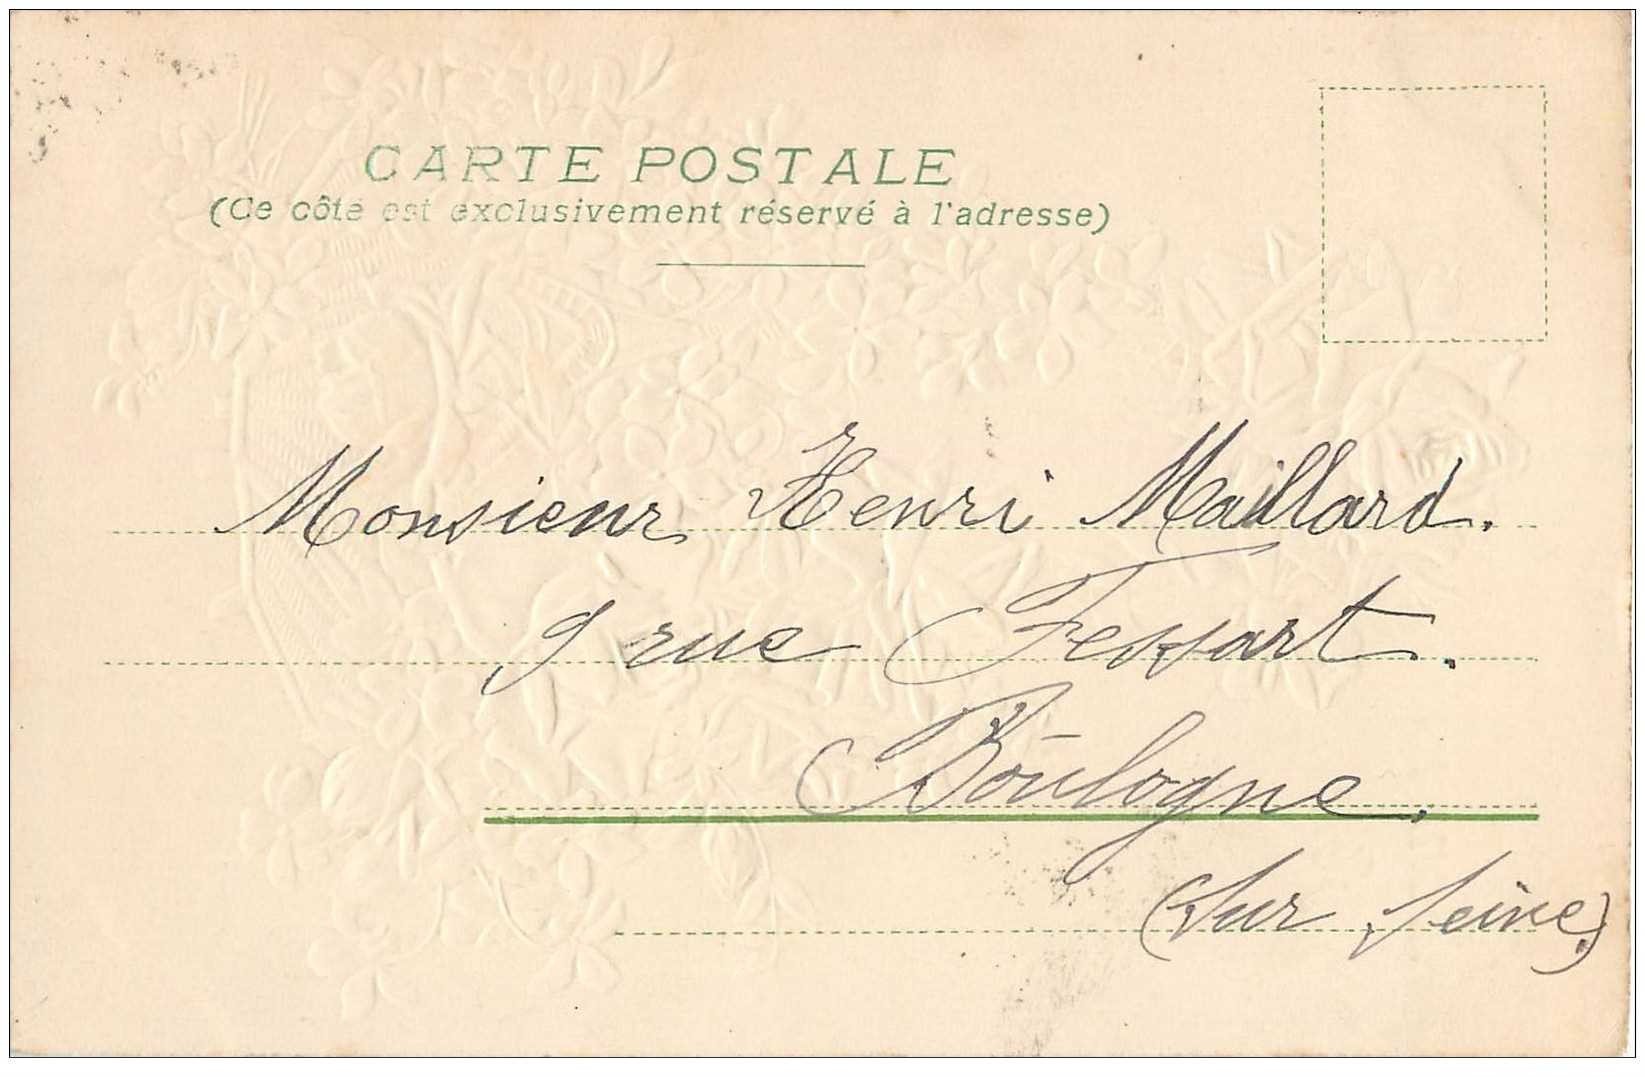 CARTE POSTALE
(Ce côté est exclusivement réservé à l'adresse)
Monsieur Henri Maillard.
9 rue Fessart.
Boulogne.
(Sur Seine)